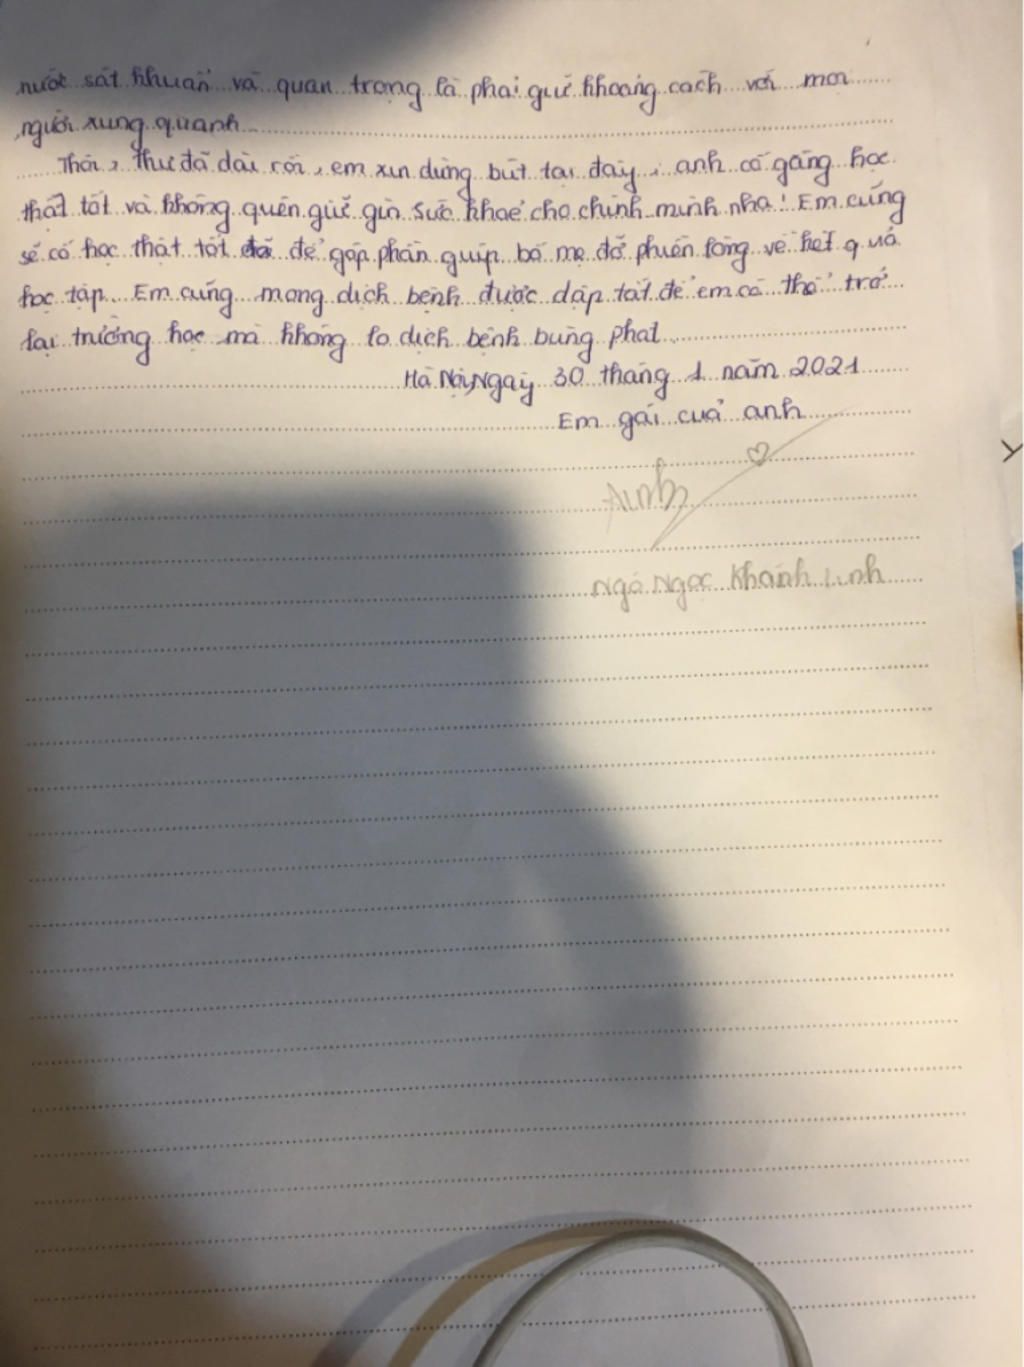 nước sát khuẩn và quan trọng là phải giữ khoảng cách với mọi
người xung quanh
Thôi, thư đã dài rồi, em xin dừng bút tại đây, anh cố gắng học
thật tốt và không quên giữ gìn sức khoẻ cho chính mình nha! Em cũng
sẽ cố học thật tốt để góp phần giúp bố mẹ đỡ phiền lòng về kết quả
học tập. Em cũng mong dịch bệnh được dập tắt để em có thể trở
lại trường học mà không lo dịch bệnh bùng phát.
Hà Nội, Ngày 30 tháng 1 năm 2021
Em gái của anh
Linh
Ngô Ngọc Khánh Linh